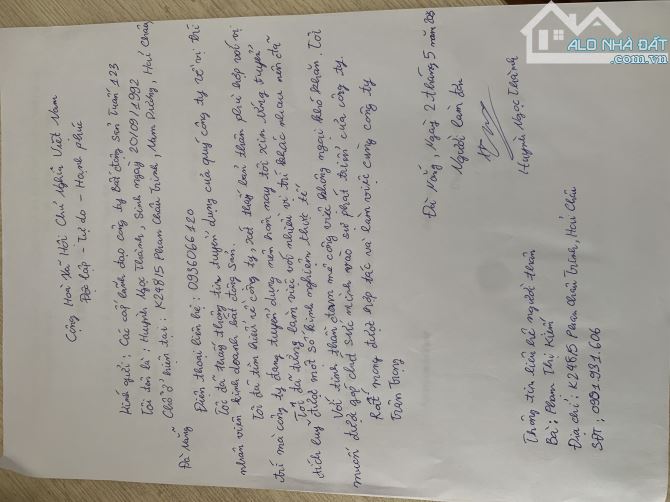 Cộng Hoà Xã Hội Chủ Nghĩa Việt Nam
Độc Lập - Tự do - Hạnh phúc
Kính gửi: Các cấp lãnh đạo công ty Bất động sản Tuấn 123
Tôi tên là: Huỳnh Ngọc Thành, Sinh ngày 20/09/1992
Chỗ ở hiện tại: K248/5 Phan Châu Trinh, Nam Dương, Hải Châu,
Đà Nẵng
Điện thoại liên hệ: 0936066120
Tôi đã thấy thông tin tuyển dụng của quý công ty về vị trí
nhân viên kinh doanh bất động sản.
Tôi đã tìm hiểu về công ty, xét thấy bản thân phù hợp với vị
trí mà công ty đang tuyển dụng nên hôm nay tôi xin ứng tuyển
Tôi đã từng làm việc với nhiều vị trí khác nhau nên đã
tích luỹ được một số kinh nghiệm thực tế
Với tinh thần đam mê công việc không ngại khó khăn. Tôi
muốn được góp chút sức mình vào sự phát triển của công ty.
Rất mong được hợp tác và làm việc cùng công ty
Trân Trọng
Đà Nẵng, Ngày 2 tháng 5 năm
Người làm đơn
Huỳnh Ngọc Thành
Thông tin liên hệ người thân
Bà: Phạm Thị Kiềm
Địa chỉ: K248/5 Phan Châu Trinh, Hải Châu
SĐT: 0931.931.606
ALO NHÀ ĐẤT
.com.vn